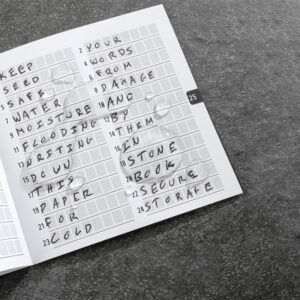 KEEP 2 YOUR
SEED 4 WORDS
5 SAFE 6 FROM
7 WATER 8 DAMAGE
9 MOISTURE 10 AND
11 FLOODING 12 BY
13 WRITING 14 THEM
15 DOWN 16 IN
17 THIS 18 STONE
19 PAPER 20 BOOK
21 FOR 22 SECURE
23 COLD 24 STORAGE
25